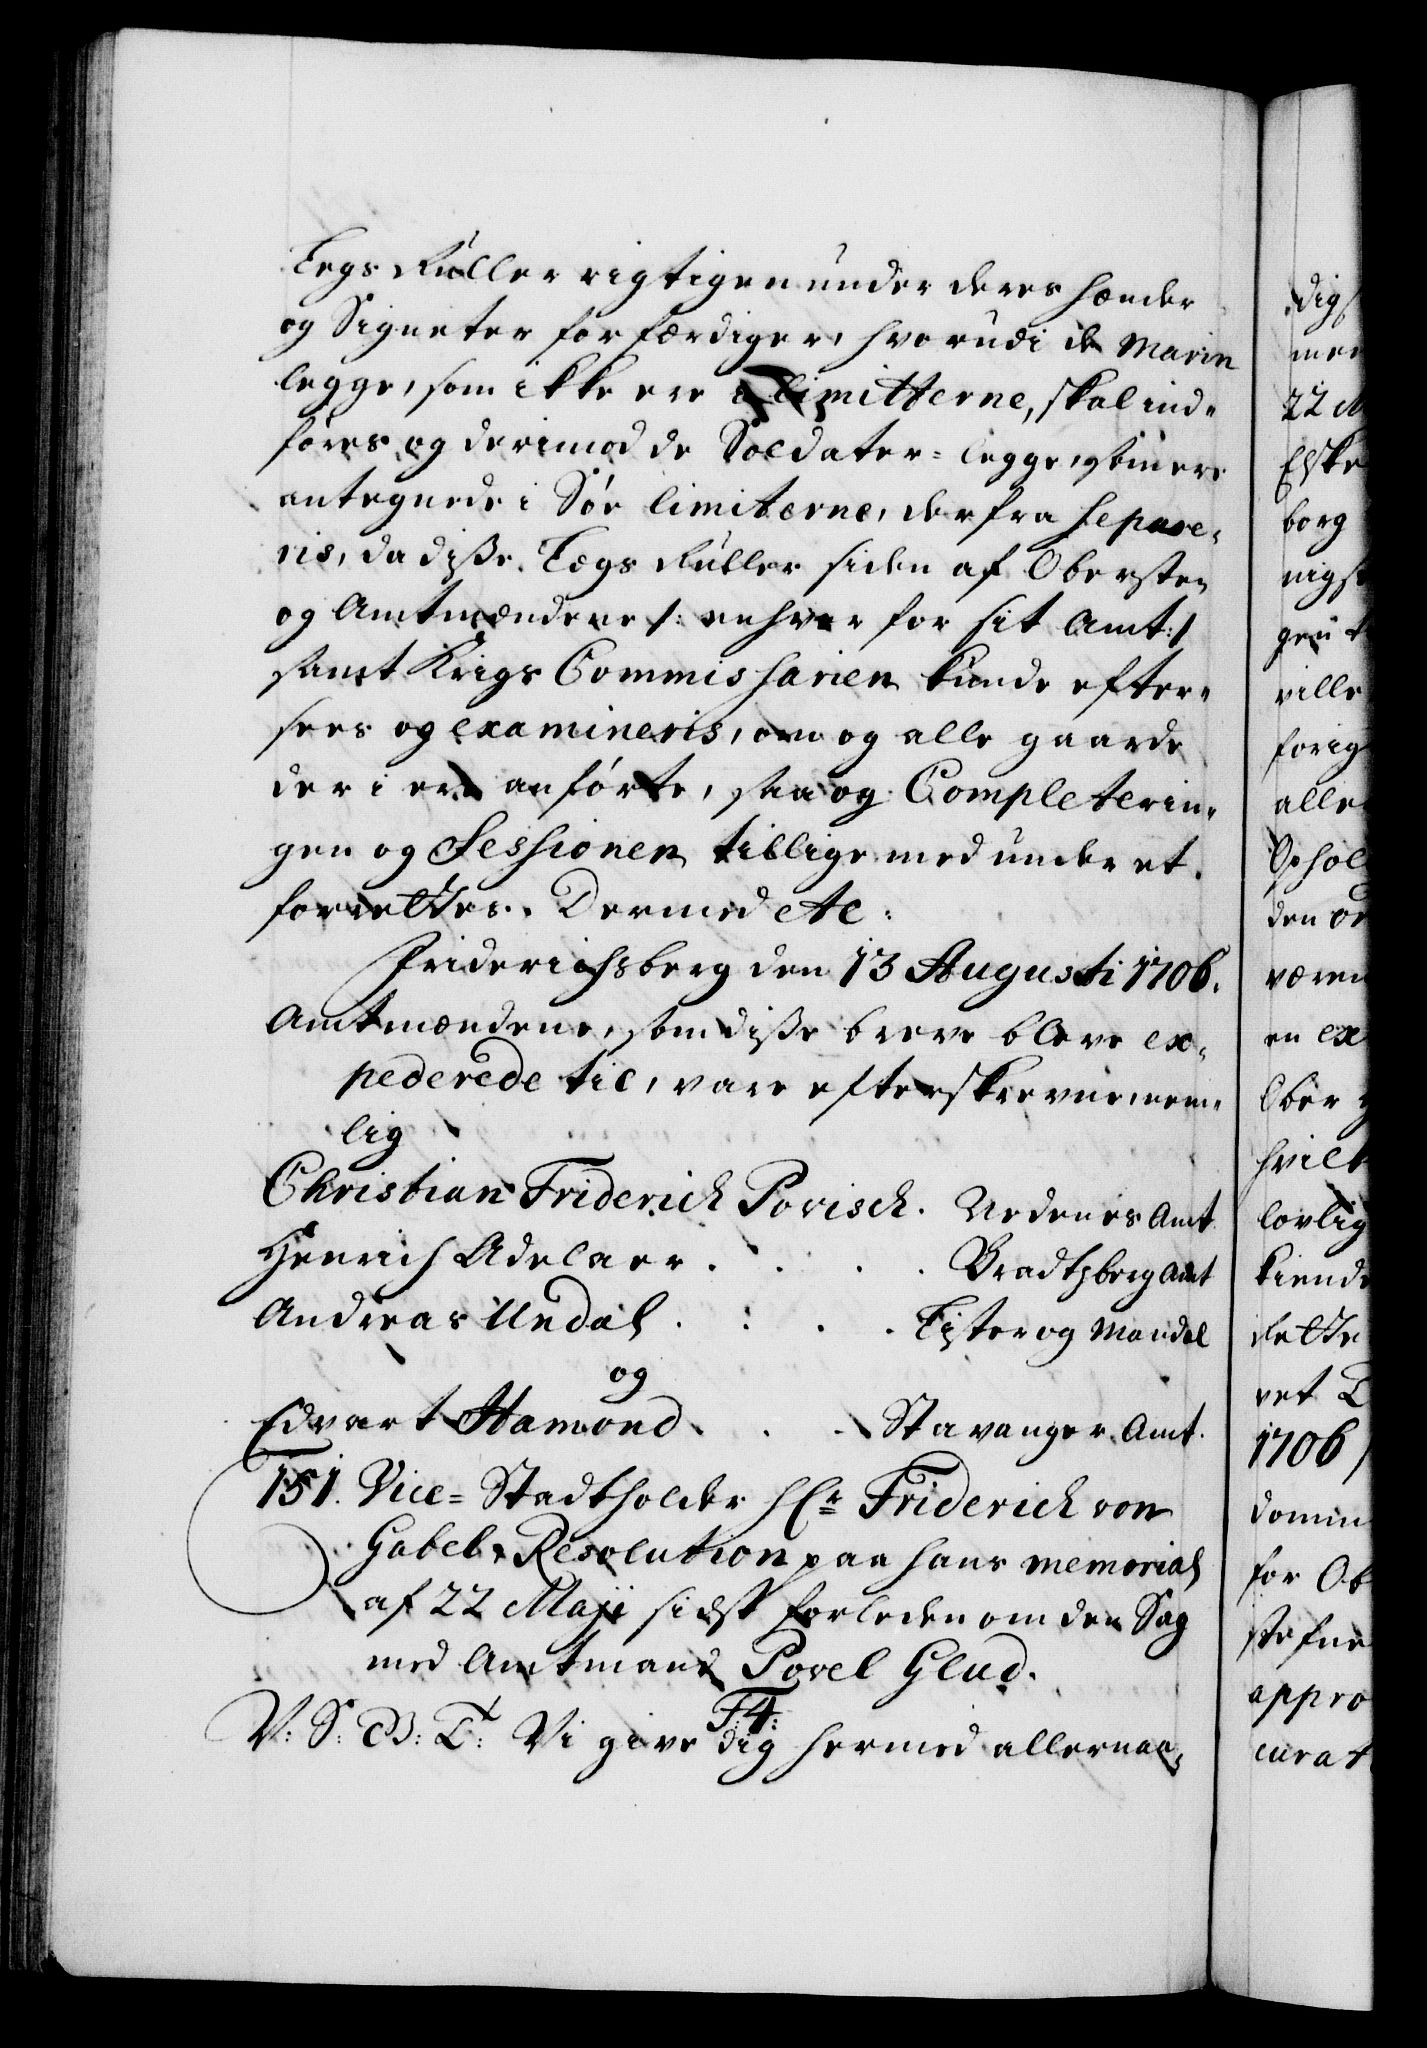 Legs Ruller rigtigen under deres hænder
og Signeter forfærdiger, hvorudi de Marin
legge, som ikke ere i limitterne, skal ind-
føres og derimod de Soldater-legge, som ere
antegnede i Søe limiterne, derfra sepere-
ris, da diße Lægs Ruller siden af Obersten
og Amtmændene /: enhver for sit Amt :/
samt Krigs Commissarien kunde efter-
sees og examineris, om og alle gaarde
der i ere anførte, saa og Completerin-
gen og Sessionen tillige med under et
forrettes. Dermed etc:
Friderichsberg den 13 Augusti 1706.
Amtmændene, som diße breve bleve ex-
pederede til, vare efterskrevne, nem-
lig
Christian Friderich Povisch. Nedenes Amt
Henrich Adelaer. . . . Bradtzberg Amt
Andreas Undal. : . . Lister og Mandal
og
Edvart Hamond. . . Stavanger Amt.
151. Vice-Stadtholder Hr Friderich von
Gabel, Resolution paa hans memorial
af 22 Maji sidst forleden om den Sag
med Amtmand Povel Glud.
F:4:
V: S: B: T: Vi give dig hermed allernaa-
dig
men
22 M
Elske
borg
nigst
gen
ville
forig
alle
Ophol
den
væren
en ex
Ober
hvilk
lovlig
kiende
dette
vet
1706
domm
for Ob
stefne
appro
curat